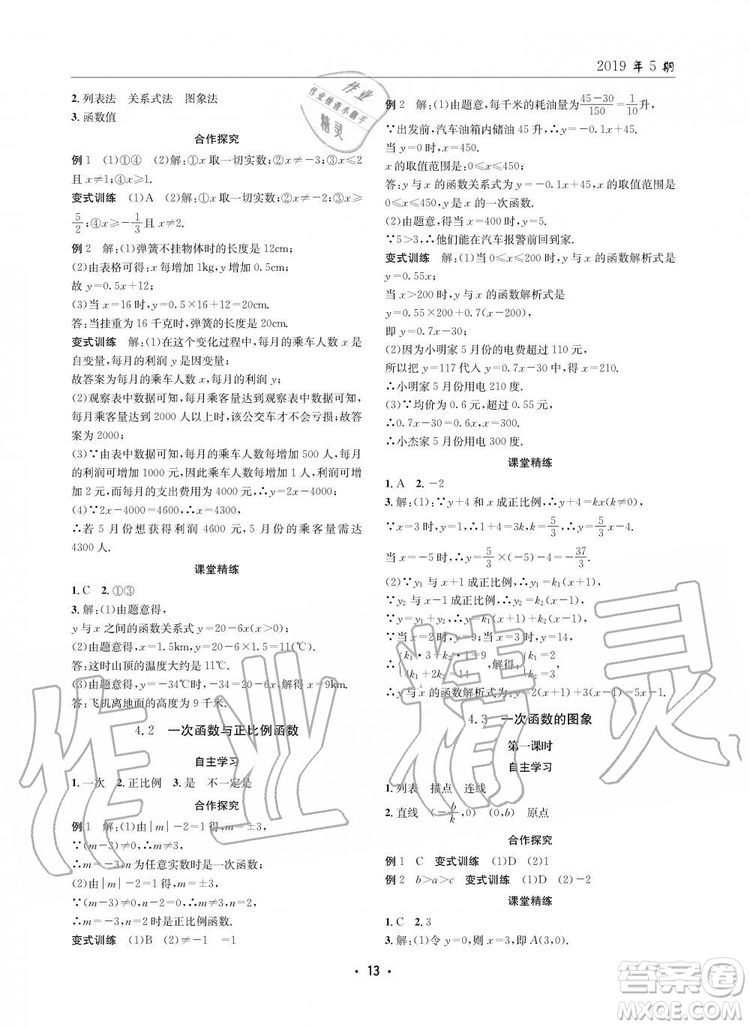 2019 年 5 期
2. 列表法 关系式法 图象法
3. 函数值
合作探究
例 1 (1)①④ (2)解:①x 取一切实数;②x≠-3;③x≤2
且 x≠1.
变式训练 (1)A (2)解:①x 取一切实数;②x≠2;③x≥
5/2;④x≥-1/3且 x≠2.
例 2 解:(1)弹簧不挂物体时的长度是 12cm;
(2)由表格可得:x 每增加 1kg,y 增加 0.5cm,
故 y=0.5x+12;
(3)当 x=16 时,y=0.5×16+12=20cm.
答:当挂重为 16 千克时,弹簧的长度是 20cm.
变式训练 解:(1)在这个变化过程中,每月的乘车人数 x 是
自变量,每月的利润 y 是因变量;
故答案为每月的乘车人数 x,每月的利润 y;
(2)观察表中数据可知,观察表中数据可知,
每月乘客量达到 2000 人以上时,该公交车才不会亏损;故答
案为 2000;
(3)由表中数据可知,每月的乘车人数每增加 500 人,每月
的利润可增加 1000 元,∴每月的乘车人数每增加 1 人,每月
的利润可增加 2 元,
而每月的支出费用为 4000 元,∴公交车票的单价为 2 元;
(4)∵
∴若 5 月份想获得利润 4600 元,5 月份的乘客量需达
4300 人.
课堂精练
1. C 2. ①③
3. 解:(1)由题意得,
y 与 x 之间的函数关系式 y=20-6x(x>0);
(2)由题意得,x=1.5km,y=20-6×1.5=11(℃).
答:这时山顶的温度大约是 11℃.
(3)由题意得,y=-34℃时,-34=20-6x,解得 x=9km.
答:飞机离地面的高度为 9 千米.
4.2 一次函数与正比例函数
自主学习
1. 一次 正比例 3. 是 不一定是
合作探究
例 1 解:(1)由|m|-2=1 得,m=±3,
∵(m-3)≠0,∴m≠3,∴m=-3,
∵
∴m 为任意实数时是一次函数;
(2)由|m|-2=1 得,m=±3,
∵(m-3)≠0,∴m≠3,∴m=-3,
∵
∴m=-3 时是正比例函数.
变式训练 (1)B (2)≠-1 =1
例 2 解:(1)由题意得,每千米的耗油量为(45-30)/150=1/10升,
∵出发前,汽车油箱内储油 45 升,
当
x 的取值范围为 0≤x≤450;
答:y 与 x 的函数关系式为 y=-0.1x+45,x 的取值范围为
0≤x≤450,y 是 x 的一次函数.
(2)由题意,得当 x=400 时,
∵5>3,∴他们能在汽车报警前回到家.
变式训练 解:(1)当 0≤x≤200 时,y 与 x 的函数解析式
是 y=0.55x;
当 x>200 时,y 与 x 的函数解析式是
y=0.55×200+0.7(x-200),
即 y=0.7x-30;
(2)因为小明家 5 月份的电费超过 110 元,
所以把 y=117 代入 y=0.7x-30 中,得 x=210.
∴小明家 5 月份用电 210 度.
(3)∵均价为 0.6 元,超过 0.55 元,
∴
∴小杰家 5 月份用电 300 度.
课堂精练
1. A 2. -2
3. 解:(1):∵y+4 和 x 成正比例,∴y+4=kx(k≠0),
∵x=3 时,y=1,∴1+4=3k,k=5/3,∴y=5/3x-4.
当 x=-5 时,∴y=5/3×(-5)-4=-37/3.
(2)∵y₁ 与 x+1 成正比例,
∵y₂ 与 x+1 成正比例,
∵y=y₁+y₂
∵当
∴ 解得
∴y 与 x 的函数解析式为:
4.3 一次函数的图象
第一课时
自主学习
1. 列表 描点 连线
2. 直线 (-b/k,0) (0,b) 原点
合作探究
例 1 C 变式训练 (1)D (2)1
例 2 b>a>c 变式训练 (1)D (2)-2
课堂精练
1. C 2. 3
3. 解:(1)令 y=0,则 x=3,即 A(3,0).
• 13 •
作业
作业快速小助手
精灵
作业精灵
答案圈